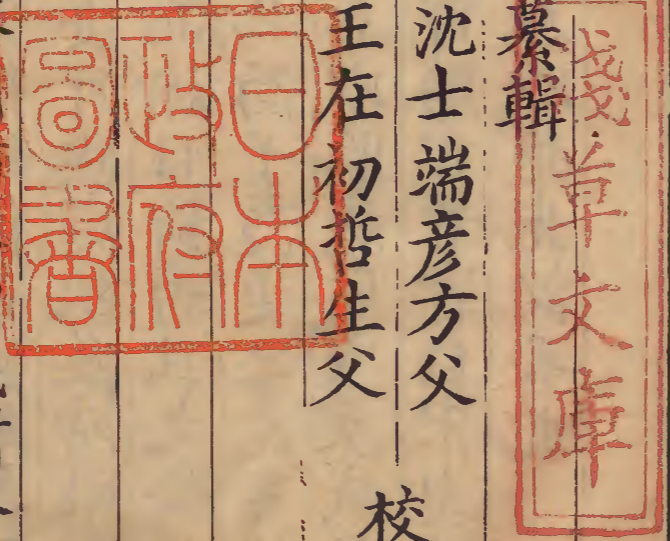 淺草文庫
纂輯
沈士端彦方父
王在初哲生父
校
日本
政府
圖書